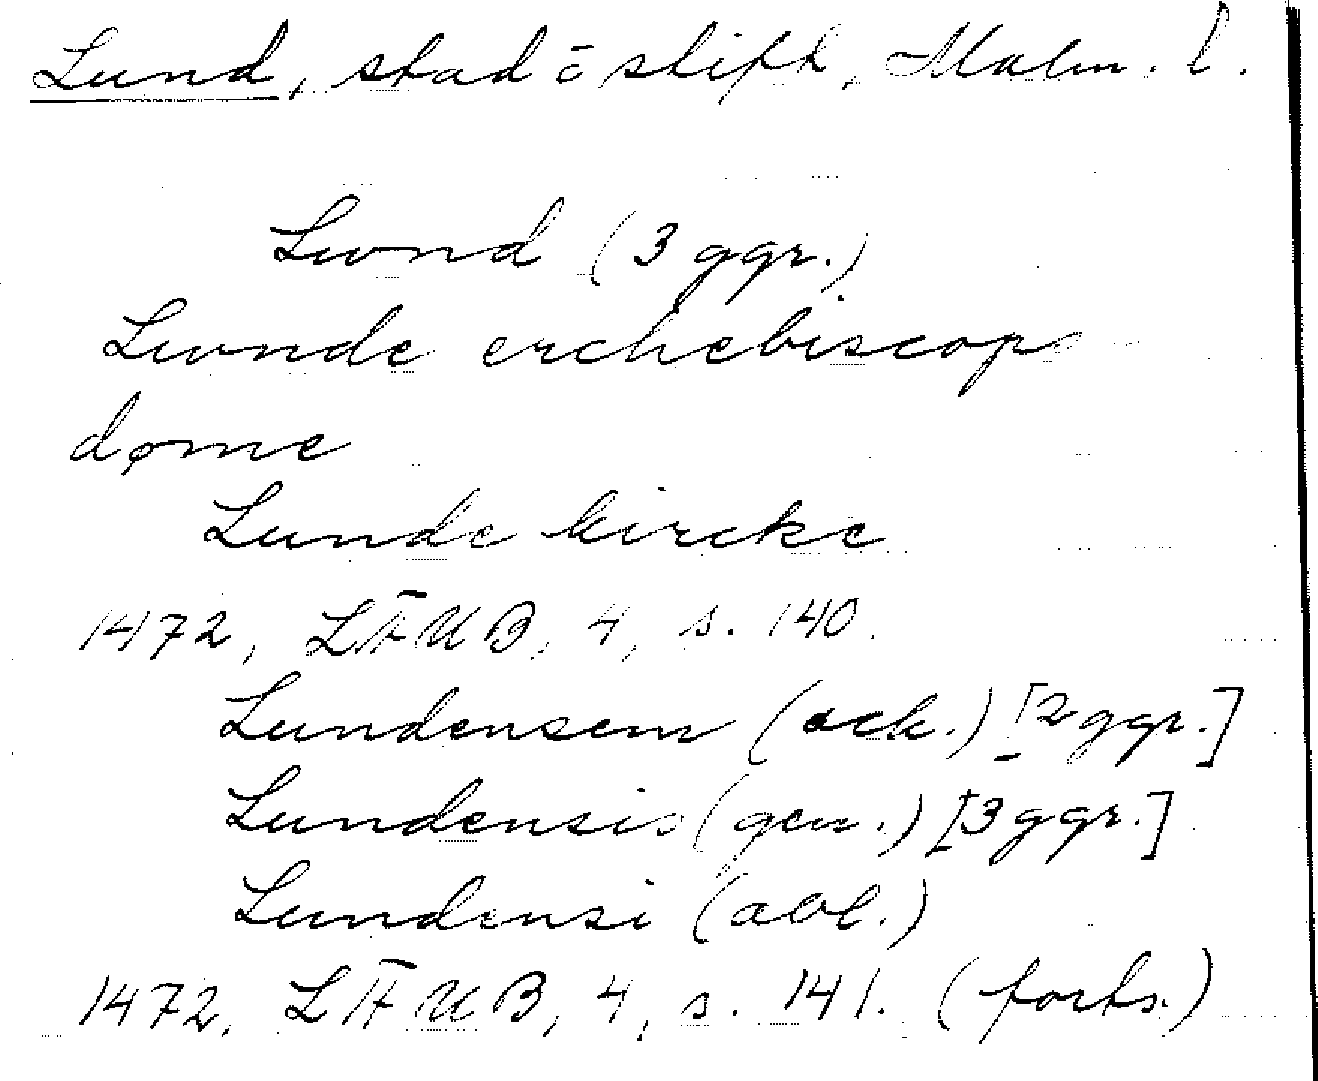 Lund, stad o stift, Malm. l.
Lwnd (3 ggr.)
Lwnde erchebiscops
døme
Lunde kircke
1472, LÄUB, 4, s. 140.
Lundensem (ack.) [2 ggr.]
Lundensis (gen.) [3 ggr.]
Lundensi (abl.)
1472, LÄUB, 4, s. 141. (forts.)